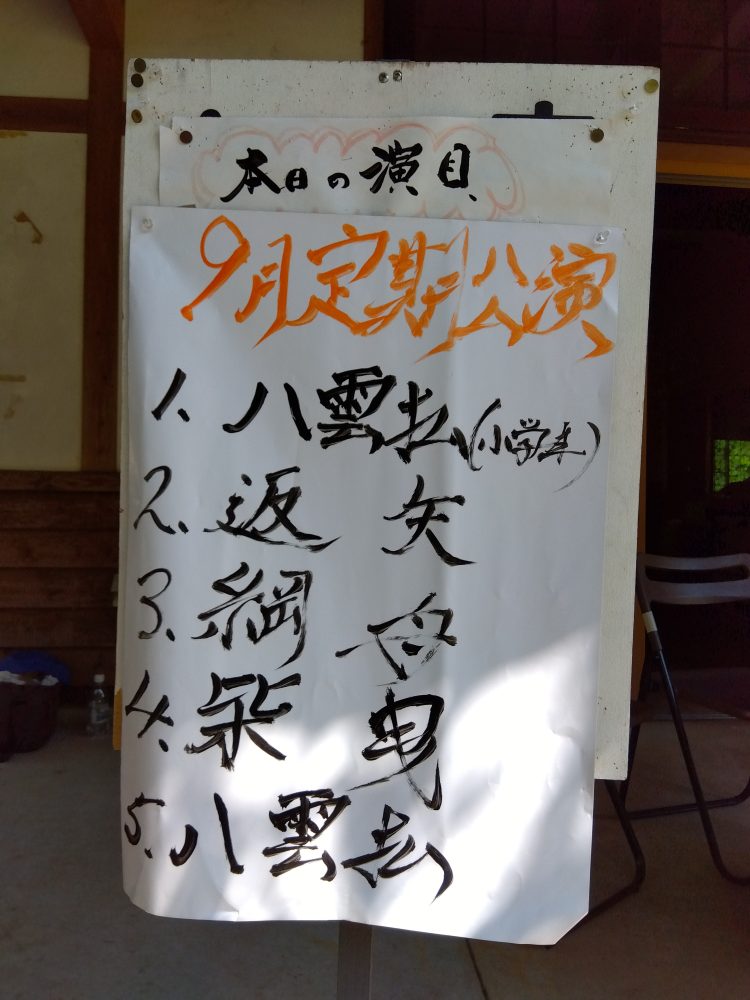 本日の演目
9月定期公演
1. 八雲払(小学生)
2. 返矢
3. 綱母
4. 柴曳
5. 八雲払